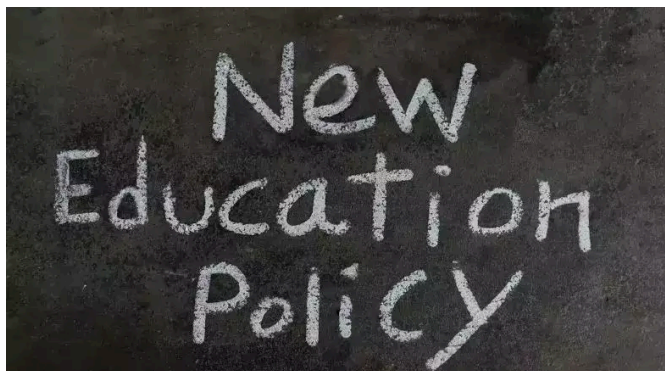 New
Education
Policy